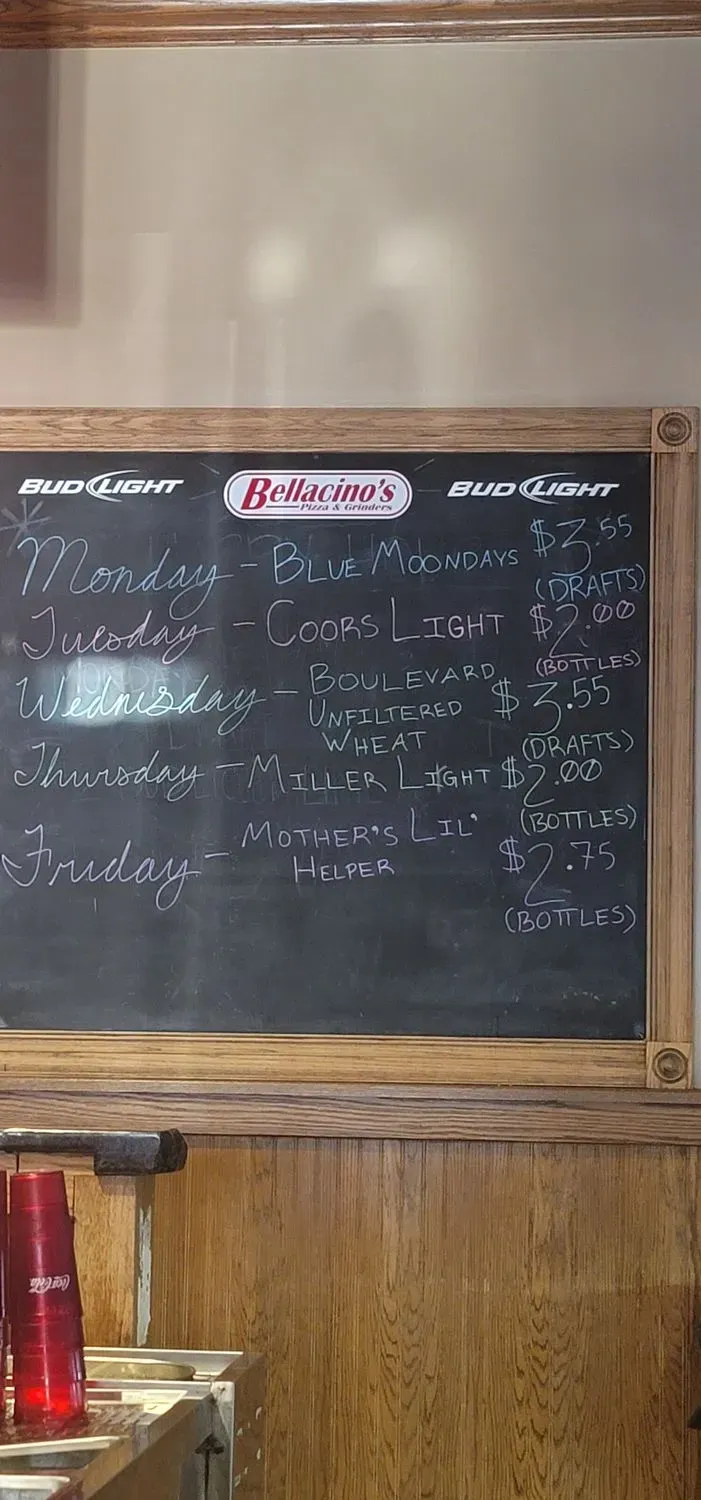 BUD LIGHT Bellacino's BUD LIGHT
Pizza & Grinders
Monday - BLUE MOONDAYS $3.55
(DRAFTS)
Tuesday - COORS LIGHT $2.00
(BOTTLES)
Wednesday - BOULEVARD
UNFILTERED $3.55
WHEAT (DRAFTS)
Thursday - MILLER LIGHT $2.00
(BOTTLES)
Friday - MOTHER'S LIL'
HELPER $2.75
(BOTTLES)
Coca-Cola